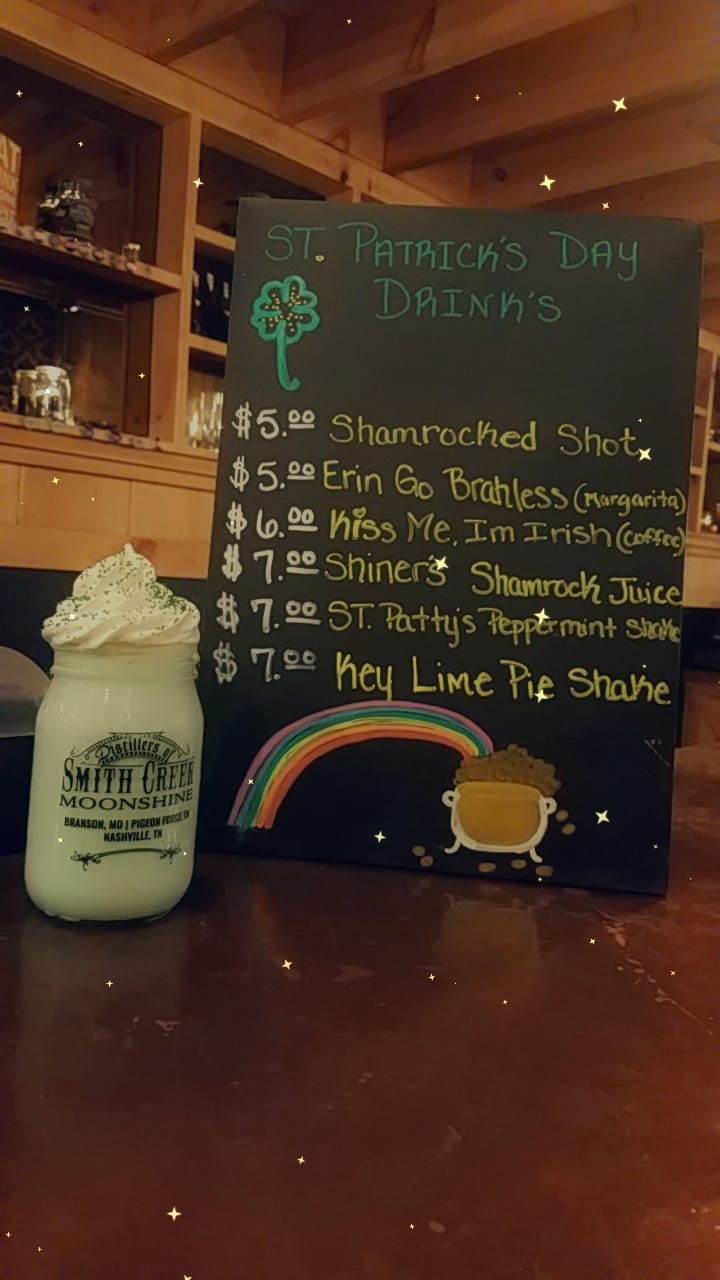 ST. PATRICK'S DAY
DRINK'S
$5.00 Shamrocked Shot
$5.00 Erin Go Brahless (Margarita)
$6.00 Kiss Me, Im Irish (Coffee)
$7.00 Shiner's Shamrock Juice
$7.00 ST. Patty's Peppermint Shake
$7.00 Key Lime Pie Shake
Distillers of
SMITH CREEK
MOONSHINE
BRANSON, MO | PIGEON FORGE, TN
NASHVILLE, TN